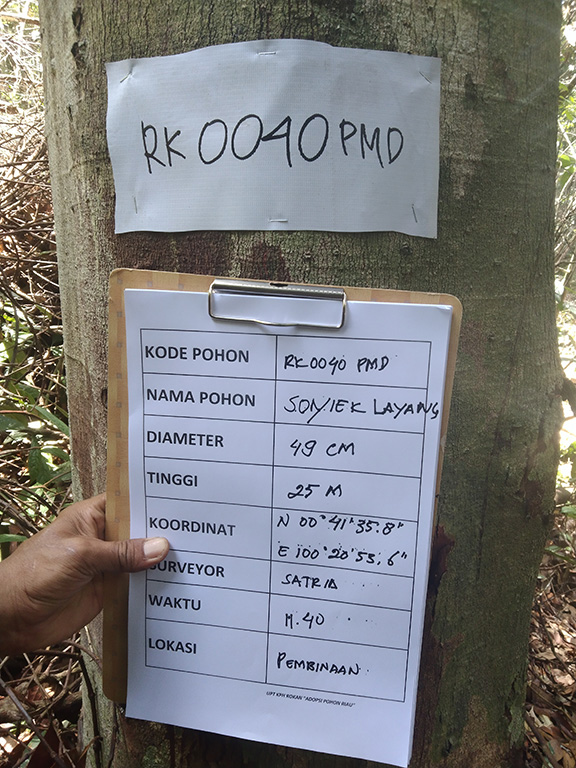 RK0040 PMD
KODE POHON RK0040 PMD
NAMA POHON SONJEK LAYANG
DIAMETER 49 CM
TINGGI 25 M
KOORDINAT N 00°41'35.8"
E 100°20'53.6"
SURVEYOR SATRIA
WAKTU 11.40
LOKASI PEMBINAAN
UPT KPH ROKAN "ADOPSI POHON RIAU"